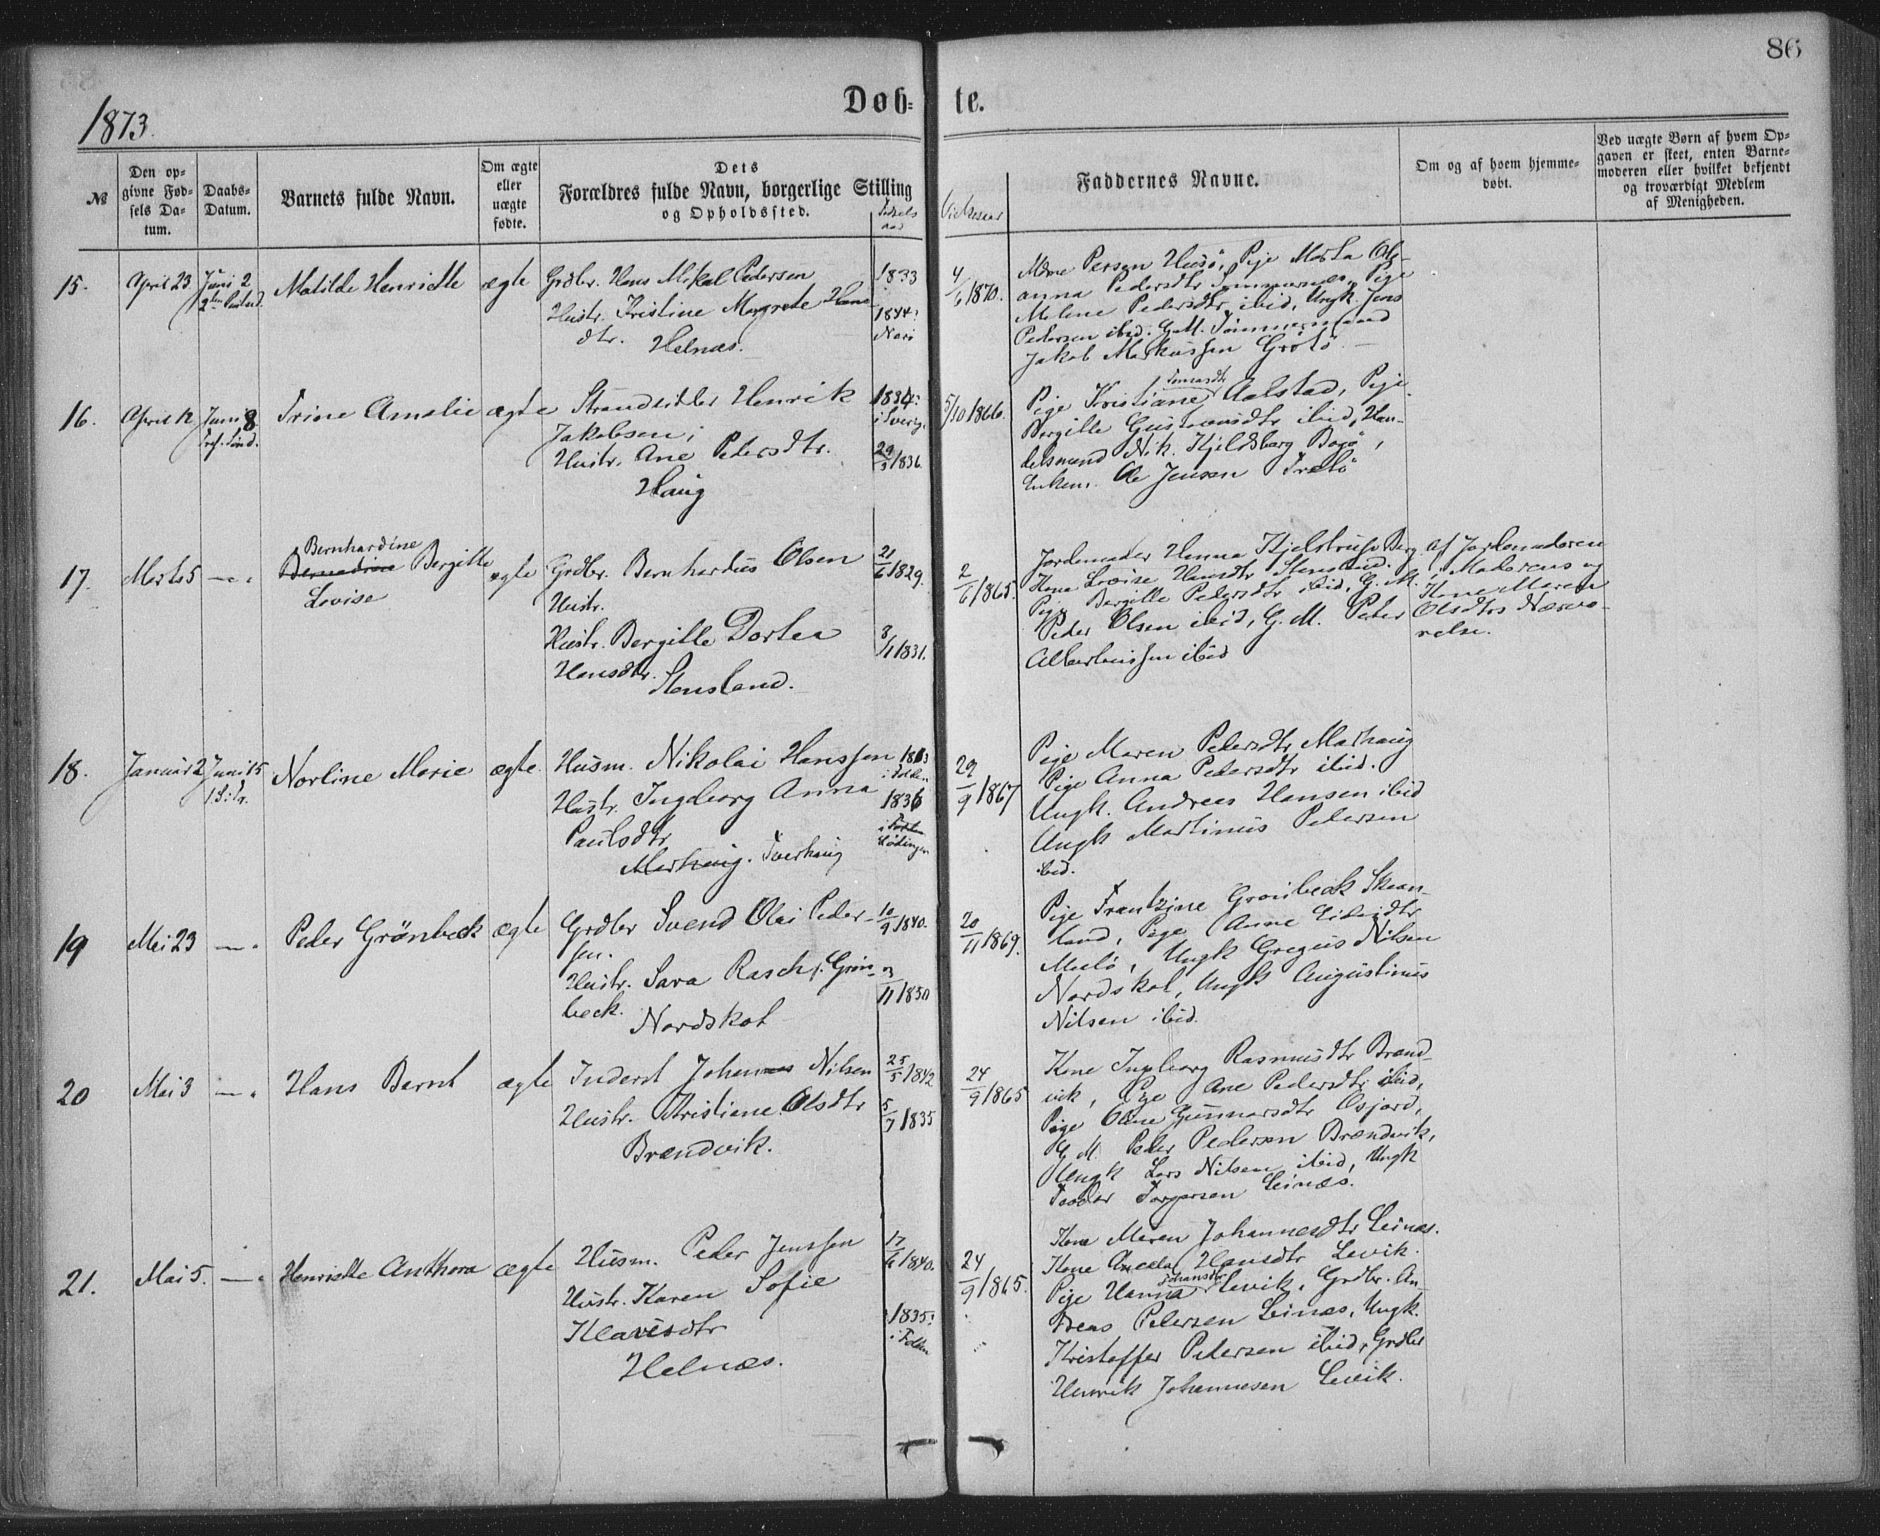 86
1873.
Døb- te.
№
Den op-
givne Fød-
sels Da-
tum.
Daabs-
Datum.
Barnets fulde Navn.
Om ægte
eller
uægte
fødte.
Dets
Forældres fulde Navn, borgerlige Stilling
og Opholdssted.
Faddernes Navne.
Om og af hvem hjemme-
døbt.
Ved uægte Børn af hvem Op-
gaven er skeet, enten Barne-
moderen eller hvilket bekjendt
og troværdigt Medlem
af Menigheden.
15. April 23 Juni 2 Matilde Henriette ægte Grdbr. Hans Mikal Pedersen 1833
Hustr. Kristine Margrete Hans
dtr. Helnæs.
1844
4/6 1870.
Persen Husö, Pige Marta Ole-
anna Pedersdtr, Pige
Melene Pedersdtr ibid, Ungk. Jens
Pedersen ibid. G.M.
Jakob Markussen Grötö
16. April 12 Juni 8 Trine Amalie ægte Strandsidder Henrik
Jakobsen,
Hustr. Ane Pedersdtr.
Haug
1834
i Sverig.
29/3 1836.
5/10 1866.
Pige Kristiane Aalstad, Pige
Bergitte Gustavsdtr ibid, Han-
delsmand Nik. Kjeldsberg Bogö,
Enkem. Ole Jensen
17. Marts 5 — " Bernhardine
Bergitte
Lovise
ægte Grdbr. Bernhardus Olsen
Hustr.
Hustr. Bergitte Dortea
Hansdtr.
Stensland.
21/6 1829.
3/1 1831.
2/6 1865.
Jordemoder Hanna Kjelstrup Berg
Kone Lovise Hansdtr Stensland.
Pige Bergitte Pedersdtr ibid, G.M.
Peder Olsen ibid, G.M. Peder
Albertussen ibid
af Jordemoderen
i Moderens og
Kone Maren
Olsdtrs Nærvæ-
relse.
18. Januar 2 Juni 15 Norline Marie ægte. Husm. Nikolai Hanssen
Hustr. Ingeborg Anna
Paulsdtr
Marhaug. Tverhaug
1836
29/9 1867
Pige Maren Pedersdtr Marhaug
Pige Anna Pedersdtr ibid.
Ungk. Andreas Hansen ibid
Ungk Martinus Pedersen
ibid.
19 Mai 23 — " Peder Grönbeck ægte Grdbr Svend Olai Peder-
sen.
Hustr. Sara Rasch f. Grön-
beck.
Nordskot
10/9 1840.
3/11 1850
20/11 1869.
Pige Frantzine Grönbeck Skaan-
land, Pige Anne
Ungk Gregus Nilsen
Nordskot, Ungk Augustinus
Nilsen ibid.
20 Mai 3 — " Hans Bernt ægte Inderst Johannes Nilsen
Hustr. Kristiane Olsdtr
Brændvik.
25/5 1842
5/7 1835
24/9 1865
Kone Ingeborg Rasmusdtr Brænd-
vik, Pige Ane Pedersdtr ibid,
Pige Oline Gunnarsdtr Osjord,
G.M. Peder Pedersen Brændvik,
Ungk Lars Nilsen ibid, Ungk
Teodor Torgersen Leinæs.
21. Mai 5. — " Henriette Anthora ægte Husm. Peder Jenssen
Hustr. Karen Sofie
Klausdtr
Helnæs.
17/6 1840.
1835
i Folden
24/9 1865.
Kone Maren Johannesdtr Leinæs.
Kone Hansdtr Levik.
Pige Hanna Johansdtr Levik, Grdbr. An-
dreas Pedersen Leinæs, Ungk.
Kristoffer Pedersen ibid, Grdbr
Henrik Johannesen Levik.